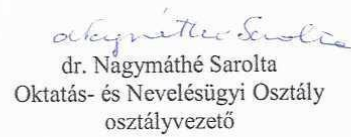 dr. Nagymáthé Sarolta
Oktatás- és Nevelésügyi Osztály
osztályvezető